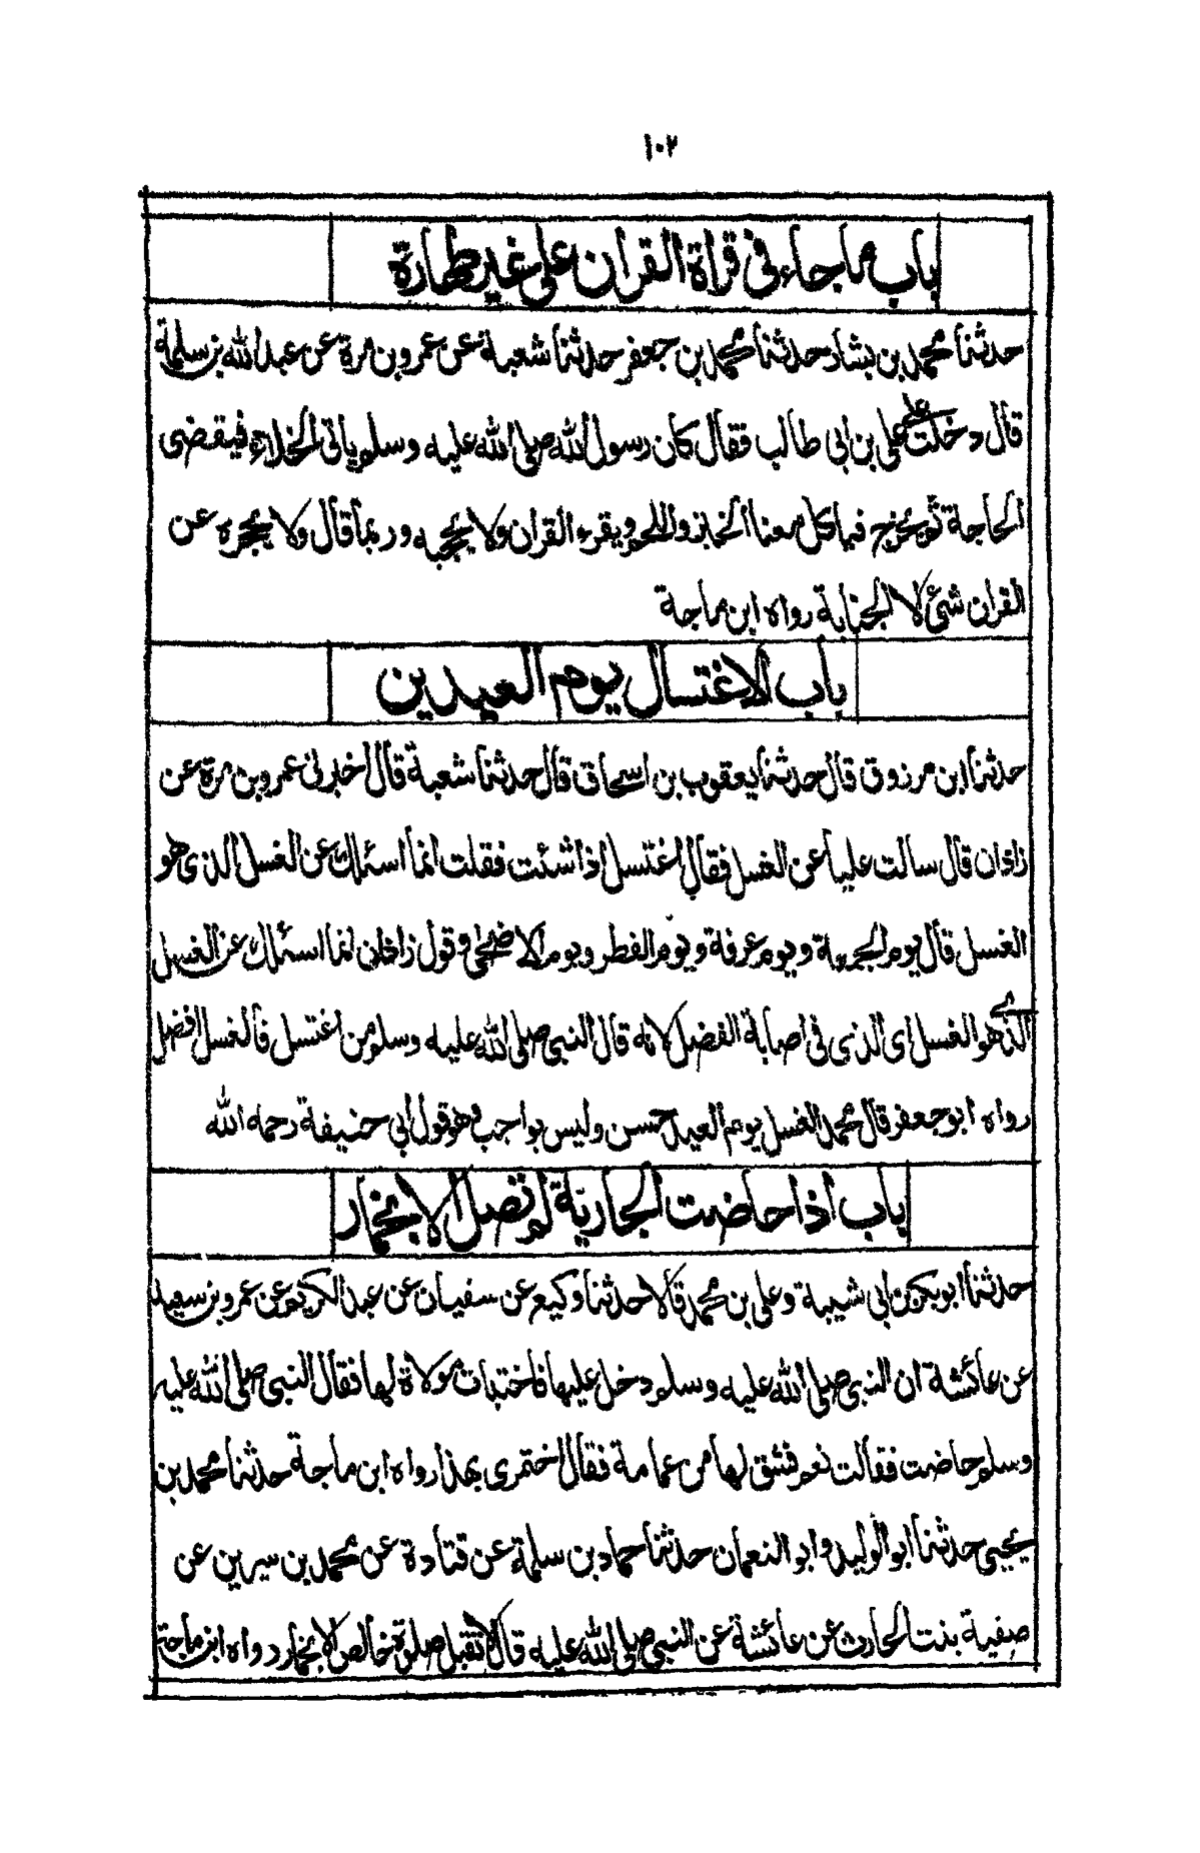 ١٠٢
باب ماجاء فى قراة القران على غير طهارة
حدثنا محمد بن بشار حدثنا محمد بن جعفر حدثنا شعبة عن عمرو بن مرة عن عبد الله بن سلمة
قال دخلت على على بن ابى طالب فقال كان رسول الله صلى الله عليه وسلم ياتى الخلاء فيقضى
الحاجة ثم يخرج فياكل معنا الخبز واللحم ويقرء القران ولا يحجبه وربما قال ولا يحجزه عن
القران شئ الا الجنابة رواه ابن ماجة
باب الاغتسال يوم العيدين
حدثنا ابن مرزوق قال حدثنا يعقوب بن اسحاق قال حدثنا شعبة قال اخبرنى عمرو بن مرة عن
زاذان قال سالت عليا عن الغسل فقال اغتسل اذا شئت فقلت انما اسئلك عن الغسل الذى هو
الغسل قال يوم الجمعة ويوم عرفة ويوم الفطر ويوم الاضحى وقول زاذان انما اسئلك عن الغسل
الذى هو الغسل اى الذى فى اصابة الفضل لانه قال النبى صلى الله عليه وسلم من اغتسل فالغسل افضل
رواه ابو جعفر قال محمد الغسل يوم العيد حسن وليس بواجب وهو قول ابى حنيفة رحمه الله
باب اذا حاضت الجارية لم تصل الا بخمار
حدثنا ابو بكر بن ابى شيبة وعلى بن محمد قالا حدثنا وكيع عن سفيان عن عبد الكريم عن عمرو بن سعيد
عن عائشة ان النبى صلى الله عليه وسلم دخل عليها فاختبات مولاة لها فقال النبى صلى الله عليه
وسلم حاضت فقالت نعم فشق لها من عمامة فقال اختمرى بهذا رواه ابن ماجة حدثنا محمد بن
يحيى حدثنا ابو الوليد وابو النعمان حدثنا حماد بن سلمة عن قتادة عن محمد بن سيرين عن
صفية بنت الحارث عن عائشة عن النبى صلى الله عليه قال لا تقبل صلوة حائض الا بخمار رواه ابن ماجة